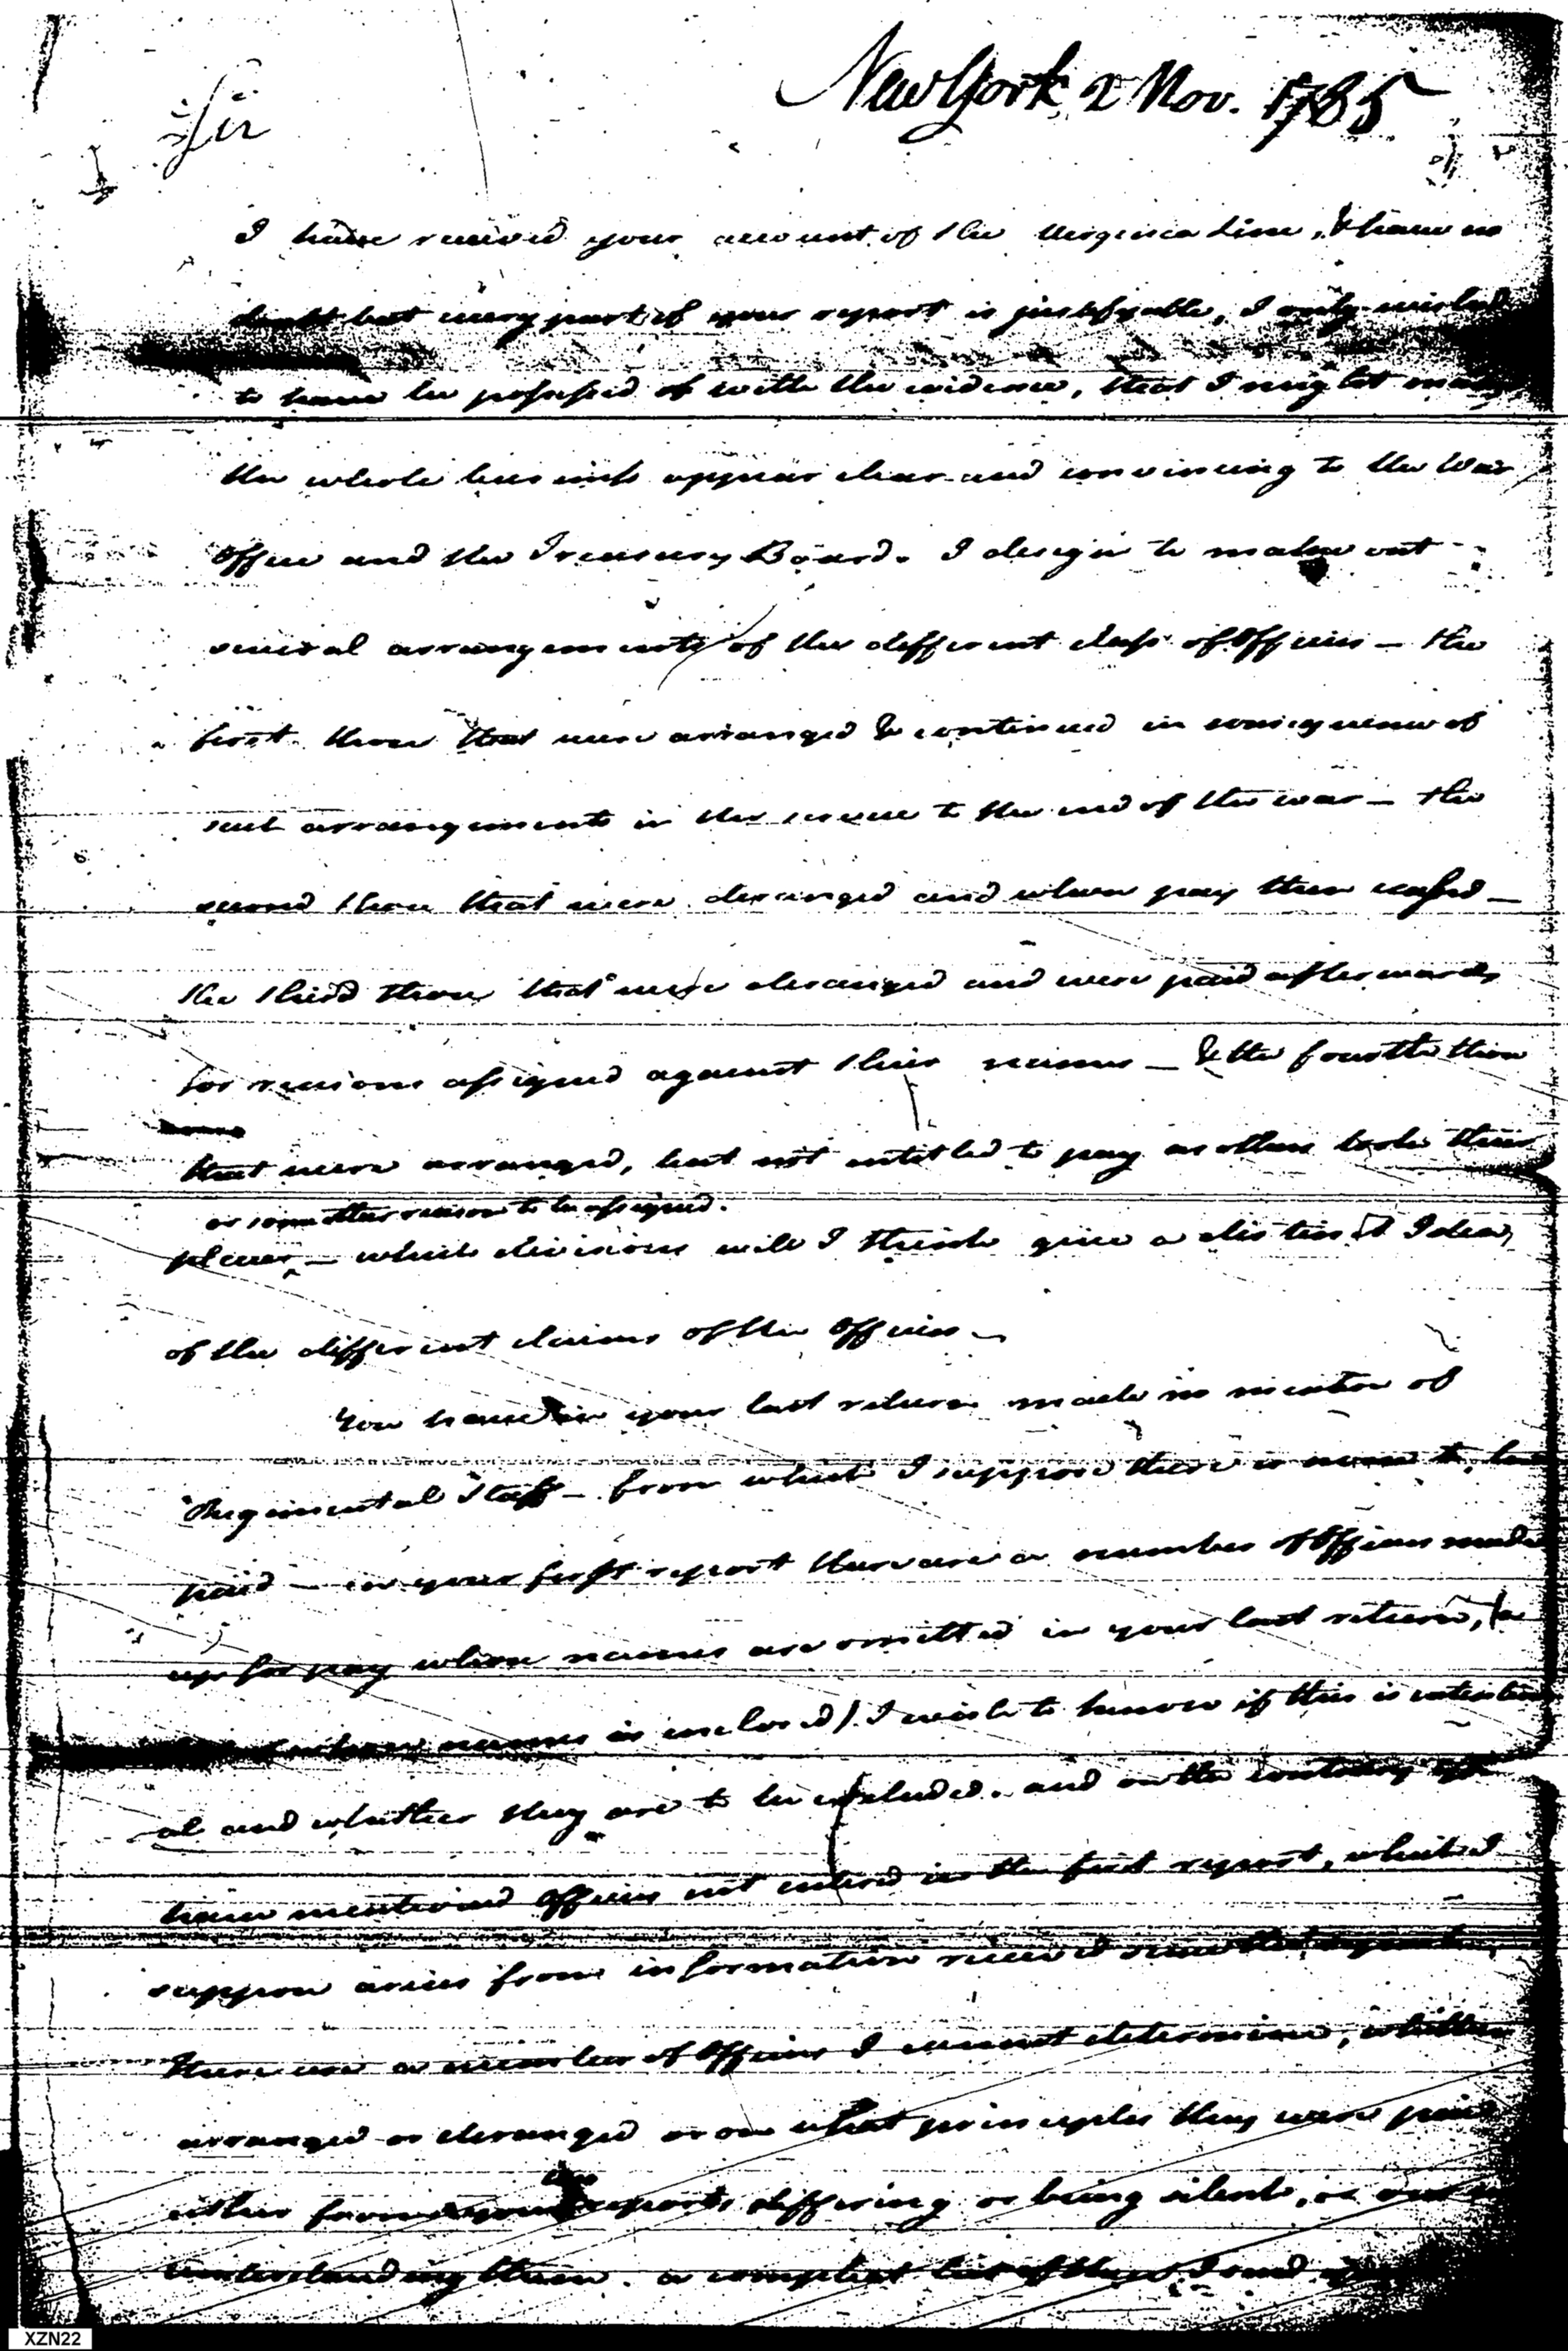 New York 2 Nov. 1785
Sir
I have received your account of the Virginia Line, & have no
doubt but every part of your report is justifyable, I only wished
to have be possessed of with the evidence, that I might make
the whole business appear clear and convincing to the War
Office and the Treasury Board. I design to make out
several arrangements of the different class of Officers — the
first those that were arranged & continued in consequence of
such arrangements in the service to the end of the war — the
second those that were deranged and whose pay then ceased —
the third those that were deranged and were paid afterwards
for reasons assigned against their names — & the fourth those
that were arranged, but not entitled to pay as others took their
or some other reason to be assigned.
places — which divisions will I think give a distinct Idea
of the different claims of the Officers —
You have in your last return made no mention of
Regimental Staff — from which I suppose there is none to be
paid — in your first report there are a number of Officers made
up for pay whose names are omitted in your last return, (a
names is inclosed) I wish to know if this is intention
al and whether they are to be excluded. and on the contrary you
have mentioned Officers not entered in the first report, which I
suppose arises from information received since that
There are a number of Officers I cannot determine, whether
arranged or deranged or on what principles they were paid
either from your reports differing or being silent, or
understanding them. a compleat list of these I send
XZN22